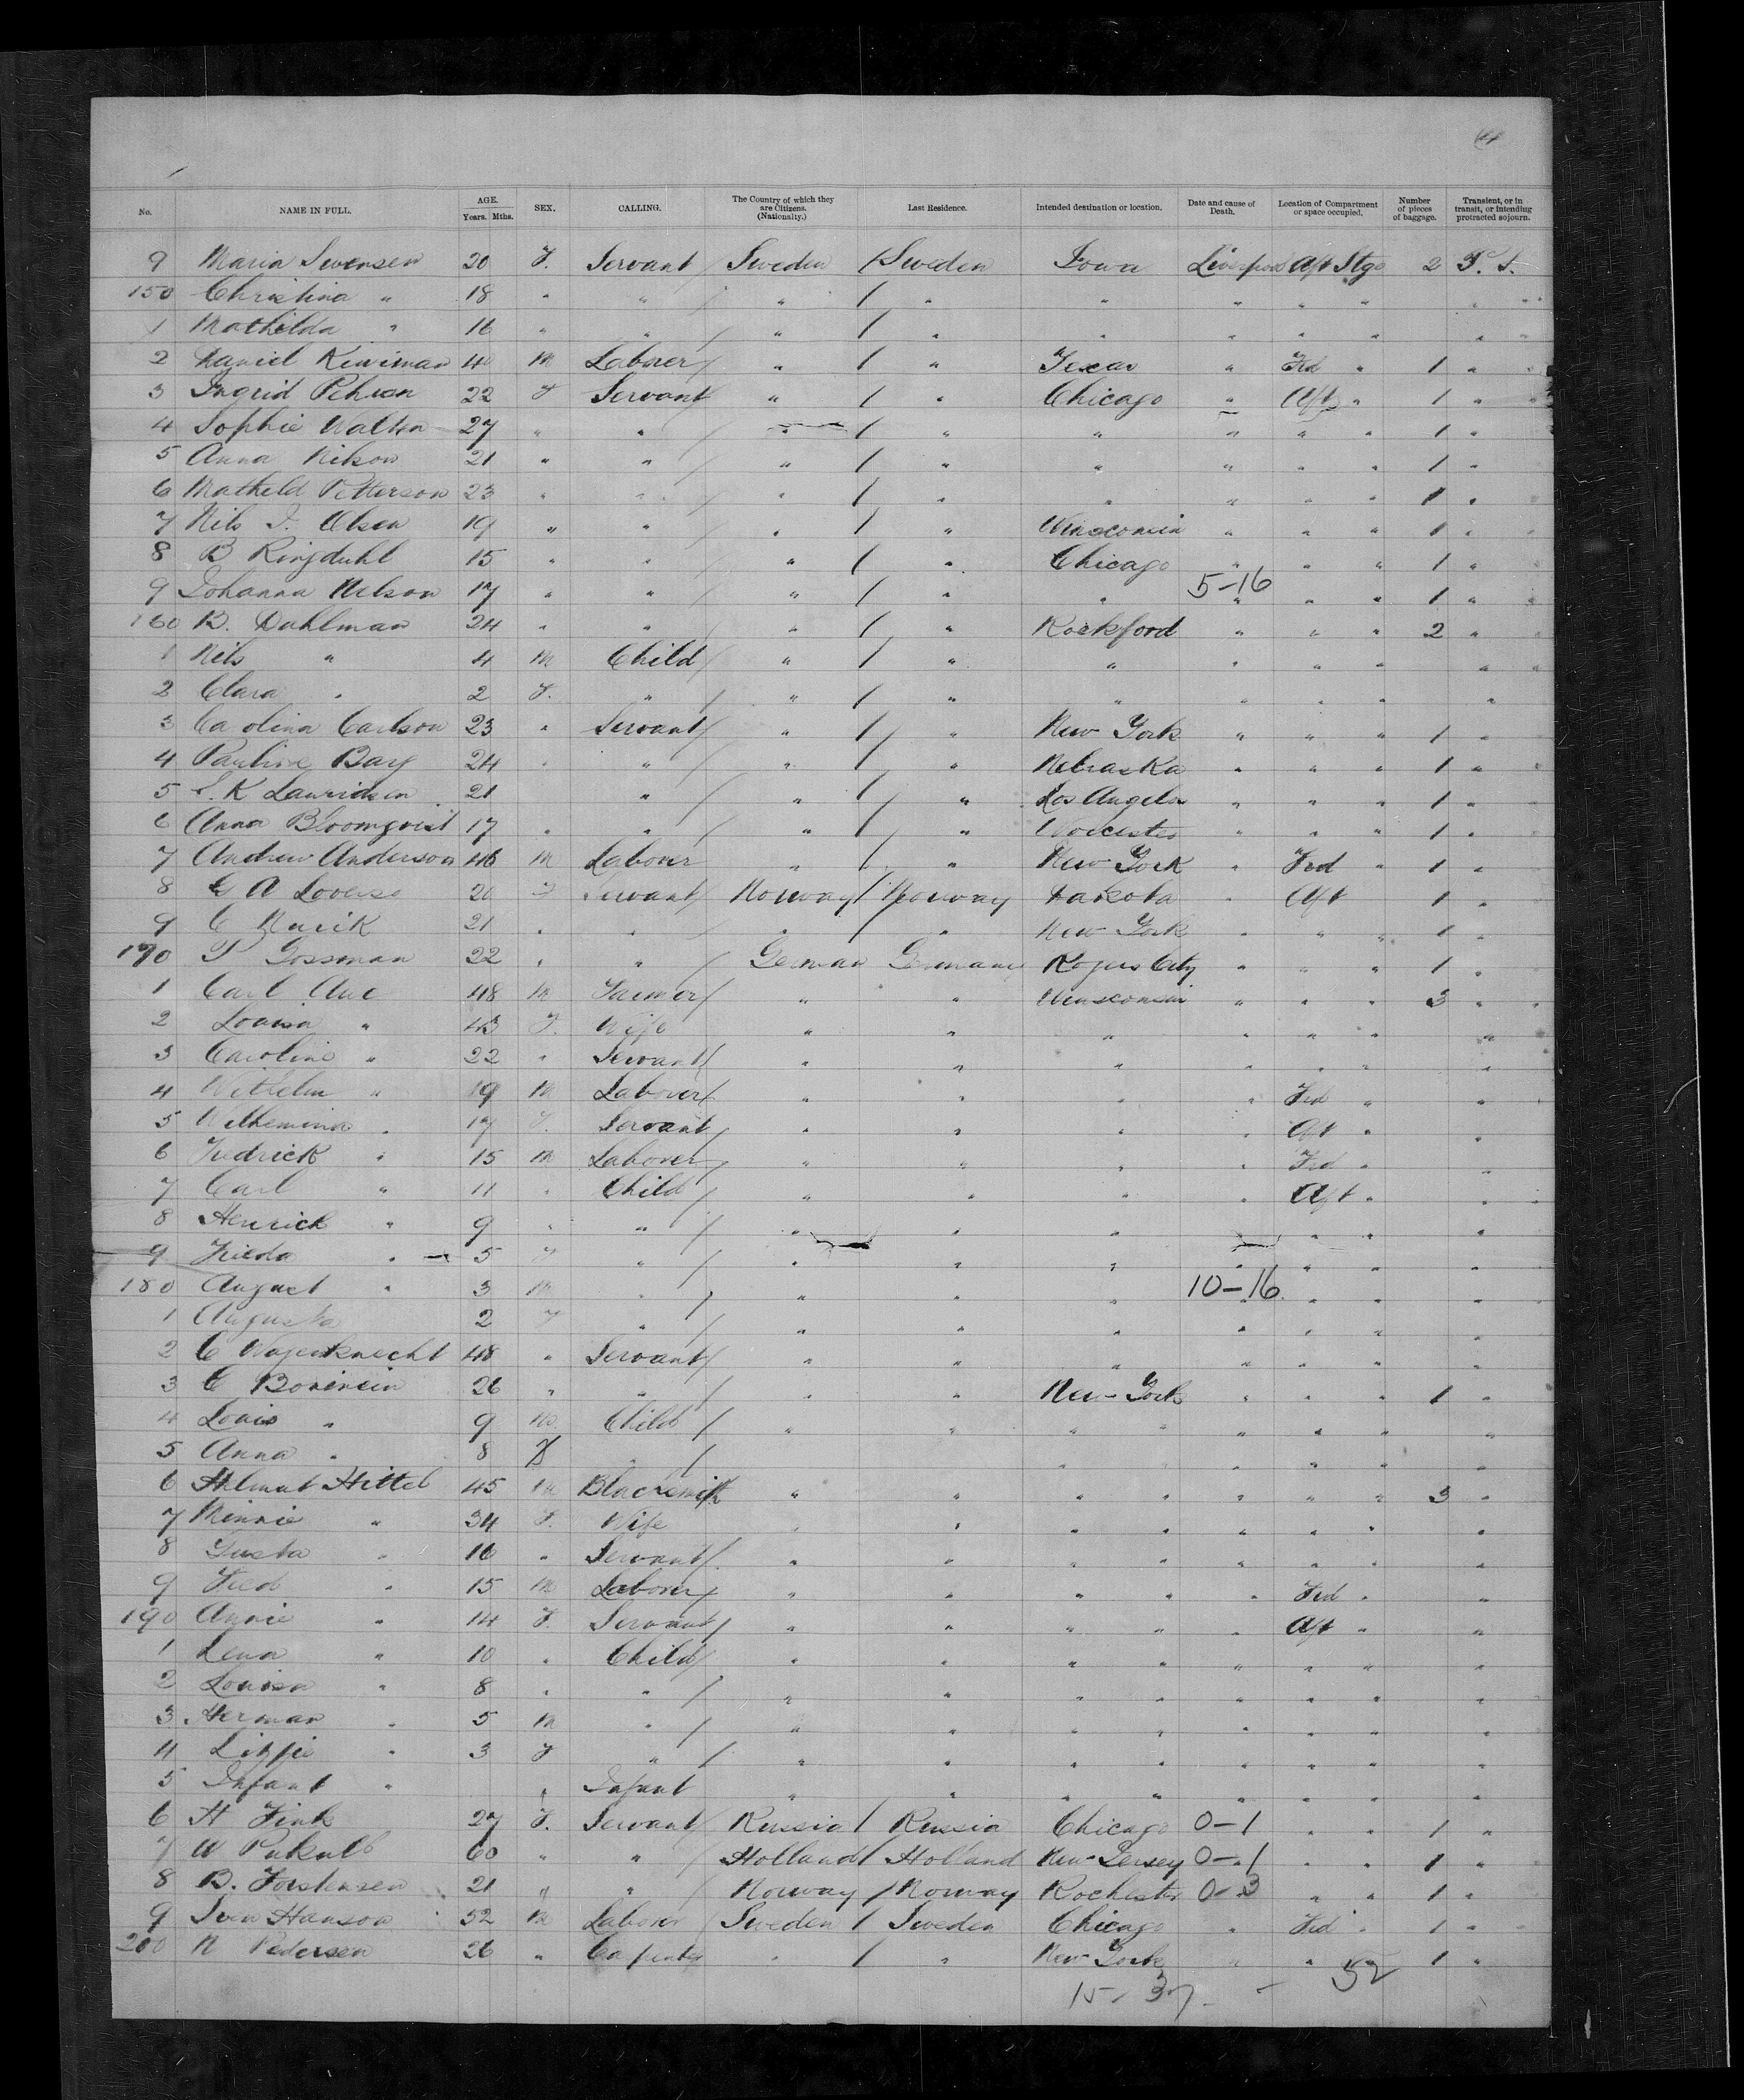 14
No. NAME IN FULL. AGE. Years. Mths. SEX. CALLING. The Country of which they are Citizens. (Nationality.) Last Residence. Intended destination or location. Date and cause of Death. Location of Compartment or space occupied. Number of pieces of baggage. Transient, or in transit, or intending protracted sojourn.
9 Maria Swensen 20 F. Servant / Sweden / Sweden Iowa Liverpool Aft Stge 2 P. S.
150 Christina " 18 " " / " / " " " " " " "
1 Mathilda " 16 " " / " / " " " " " " "
2 Daniel 40 M Laborer / " / " Texas " Frd " 1 "
3 Ingrid Pehrson 22 F Servant / " / " Chicago " Aft " 1 " "
4 Sophie 27 " " / " / " " " " " 1 "
5 Anna Nilson 21 " " / " / " " " " " 1 "
6 Mathild Petterson 23 " " / " / " " " " " 1 "
7 Nils J. Olsen 19 " " / " / " Winsconsin " " " 1 " "
8 B Ringduhl 15 " " / " / " Chicago " " " 1 "
9 Johanna Nelson 17 " " / " / " " 5-16 " " " 1 " "
160 B. Dahlman 24 " " / " / " Rockford " " " 2 "
1 Nils " 4 M Child / " / " " " " " " "
2 Clara " 2 F. " / " / " " " " " "
3 Carolina Carlson 23 " Servant / " / " New York " " " 1 "
4 Pauline Bay 24 " " / " / " Nebraska " " " 1 "
5 K Lauridsen 21 " / " / " Los Angelos " " " 1 "
6 Anna Bloomqvist 17 " " / " / " Worcester " " " 1 "
7 Andrew Anderson 46 M Laborer " / " New York " Frd " 1 "
8 G A 20 F Servant / Norway / Norway Dakota " Aft 1 "
9 C 21 " " / " / " New York " " " 1 "
170 P Gossman 22 " " / German Germany Rogers City " " " 1 "
1 Carl Aue 48 M Farmer / " " Winsconsin " " " 3 " "
2 Louisa " 43 F. Wife " " " " " " "
3 Caroline " 22 " Servant / " " " " " " "
4 Wilhelm " 19 M Laborer / " " " " Frd " "
5 Wilhemina " 17 F. Servant / " " " " Aft " "
6 Fredrick " 15 M Laborer / " " " " Frd " "
7 Carl " 11 " Child / " " " " Aft " " "
8 Henrich " 9 " " / " " " " " " "
9 Frieda " 5 F " / " " " " " " " "
180 August " 3 M " / " " " 10-16 " " " "
1 Augusta 2 F " / " " " " " " "
2 C Wagenknecht 48 " Servant / " " " " " " "
3 C 26 " " / " " New York " " " 1 "
4 Louis " 9 M. Child / " " " " " " " "
5 Anna " 8 F " / " " " " " "
6 Helmut Hittel 45 M Blacksmith " " " " " " " 3 "
7 Minnie " 34 F. Wife " " " " " " " "
8 Gusta " 16 " Servant / " " " " " " " "
9 Fred " 15 M Laborer / " " " " " Frd " "
190 Annie " 14 F. Servant / " " " " " Aft " "
1 Lena " 10 " Child / " " " " " " " "
2 Louisa " 8 " " / " " " " " " " "
3 Herman " 5 M " / " " " " " " " "
4 Lizzie " 3 F " / " " " " " " " "
5 Infant " " Infant " " " " " " " "
6 H Fink 27 F. Servant / Russia / Russia Chicago 0-1 " " 1 "
7 W 60 " " / Holland / Holland New Jersey 0-1 " " 1 "
8 B. 21 " " / Norway / Norway Rochester 0-3 " " 1 "
9 Sven Hanson 52 M Laborer / Sweden / Sweden Chicago " Frd " 1 " "
200 N Pedersen 26 " Carpenter " / " New York " " " 1 "
15-37- - 52